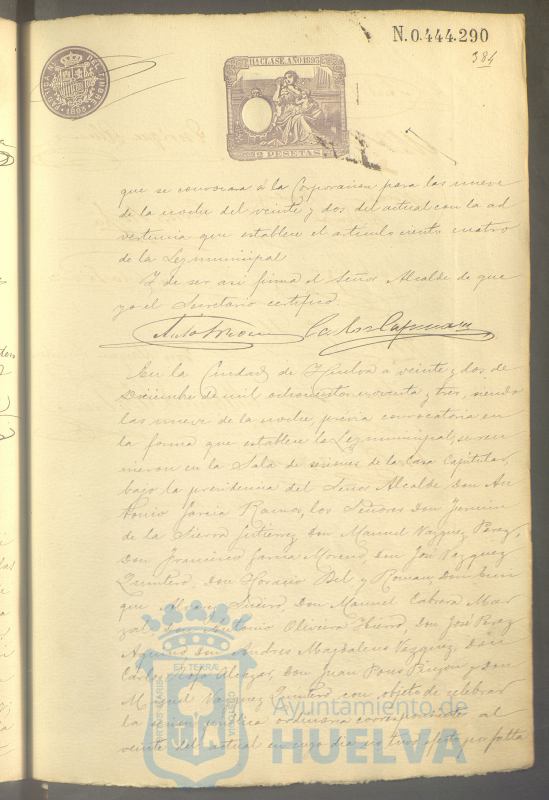 N.0.444.290
384
11ª CLASE. AÑO 1893
2 PESETAS
que se convocara á la Corporacion para las nueve
de la noche del veinte y dos del actual con la ad
vertencia que establece el articulo ciento cuatro
de la Ley municipal
Y de ser asi firma el Señor Alcalde de que
yo el Secretario certifico.
En la Ciudad de Huelva á veinte y dos de
Diciembre de mil ochocientos noventa y tres, siendo
las nueve de la noche, previa convocatoria en
la forma que establece la Ley municipal, se reu
nieron en la Sala de sesiones de la Casa Capitular,
bajo la presidencia del Señor Alcalde Don An
tonio Garcia Ramos, los Señores Don
de la Sierra Gutierrez, Don Manuel Vazquez Perez,
Don Francisco Garcia Moreno, Don José Vazquez
Quintero, Don Horacio Bel y Roman, Don Enri
que Don Manuel Cabrera Mar
Antonio Oliveira Don José Perez
Don Andres Magdaleno Vazquez, Don
Carlos Don Juan Pons Pinzon y Don
Manuel Vazquez Quintero con objeto de celebrar
la sesion publica ordinaria correspondiente al
veinte del actual en cuyo dia no tuvo efecto por falta
Ayuntamiento de
HUELVA